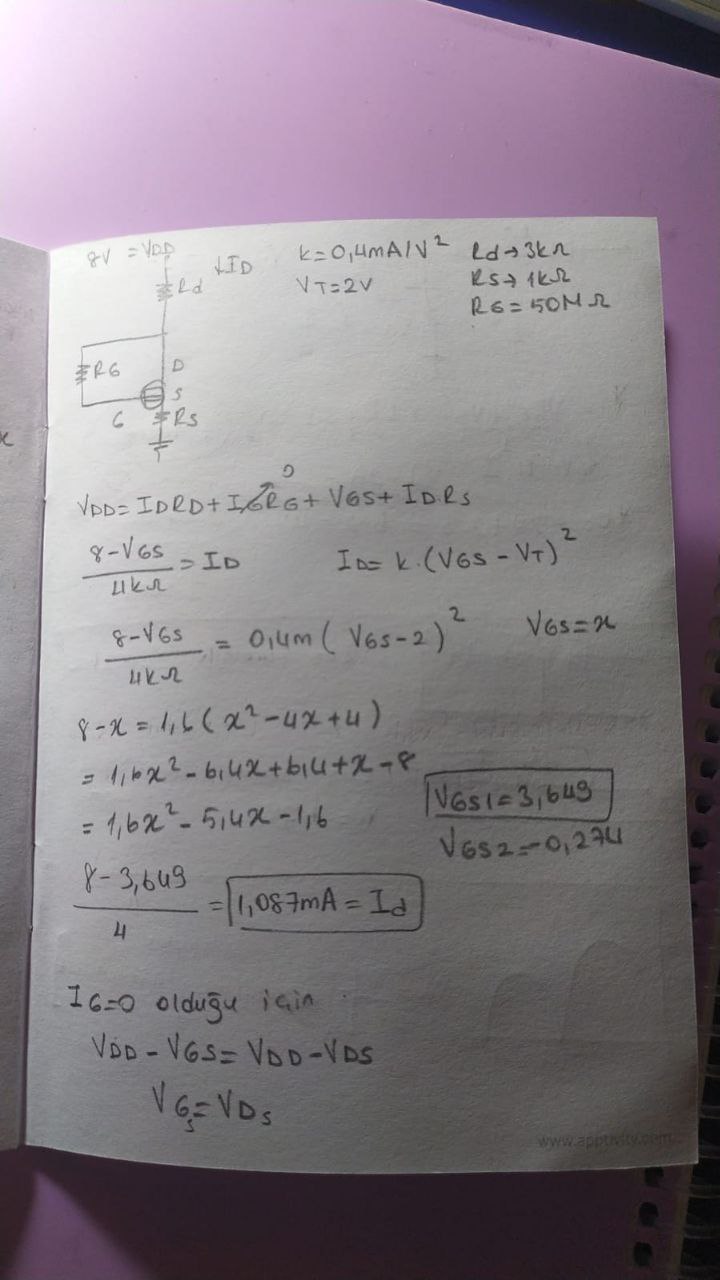 8V = VDD
↓ID
k=0,4mA/V²
Rd→3kΩ
Rd
VT=2V
Rs→1kΩ
RG=50MΩ
RG
D
S
G
Rs
0
VDD=IDRD+IGRG+VGS+IDRS
8-VGS/4kΩ=ID
ID=k.(VGS-VT)²
8-VGS/4kΩ = 0,4m(VGS-2)²
VGS=x
8-x=1,6(x²-4x+4)
=1,6x²-6,4x+6,4+x-8
=1,6x²-5,4x-1,6
VGS1=3,649
VGS2=-0,274
8-3,649/4 = 1,087mA=Id
IG=0 olduğu için
VDD-VGS=VDD-VDS
VGs=VDs
www.apptivity.com